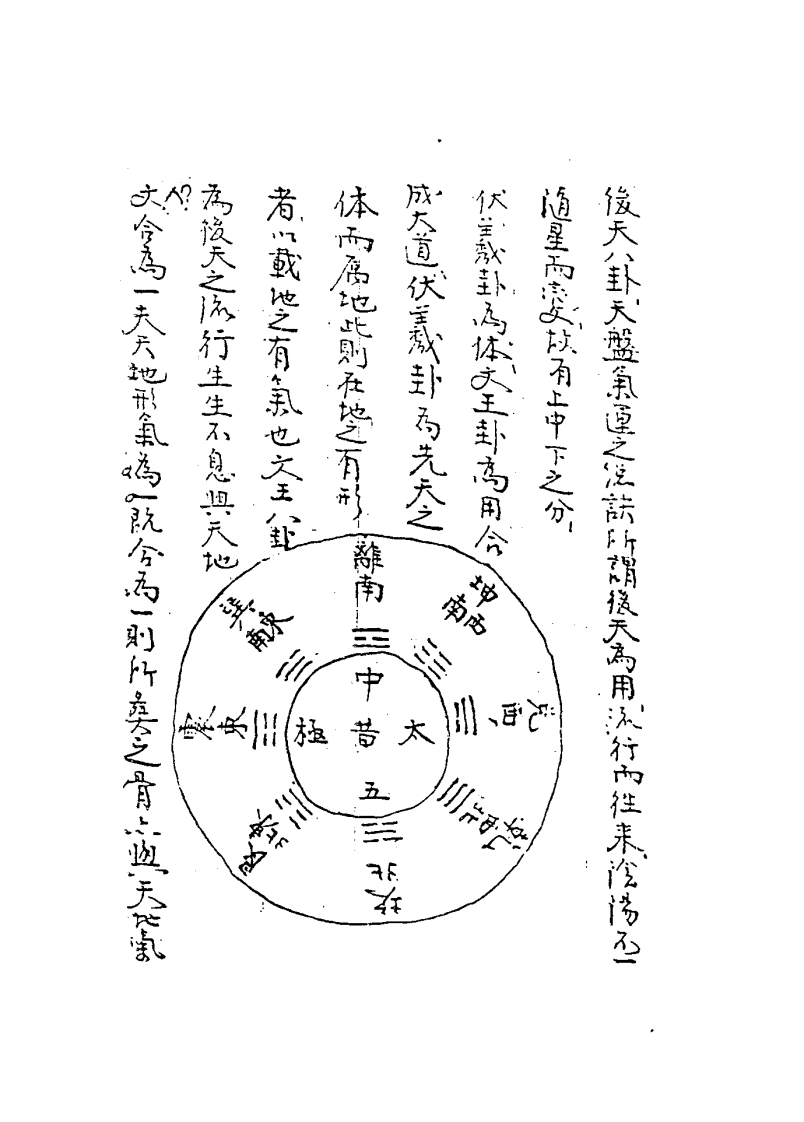 後天八卦天盤氣運之法訣所謂後天為用流行而往来陰陽不一
隨星而變故有上中下之分
伏羲卦為体文王卦為用合
成大道伏羲卦為先天之
体而属地此則在地之有形
者以載地之有氣也文王八卦
為後天之流行生生不息與天地
文合為一夫天地形氣為一既合為一則所奠之骨亦與天地氣
離南
坤西南
兌西
乾西北
坎北
艮東北
震東
巽東南
中
太昔極
五